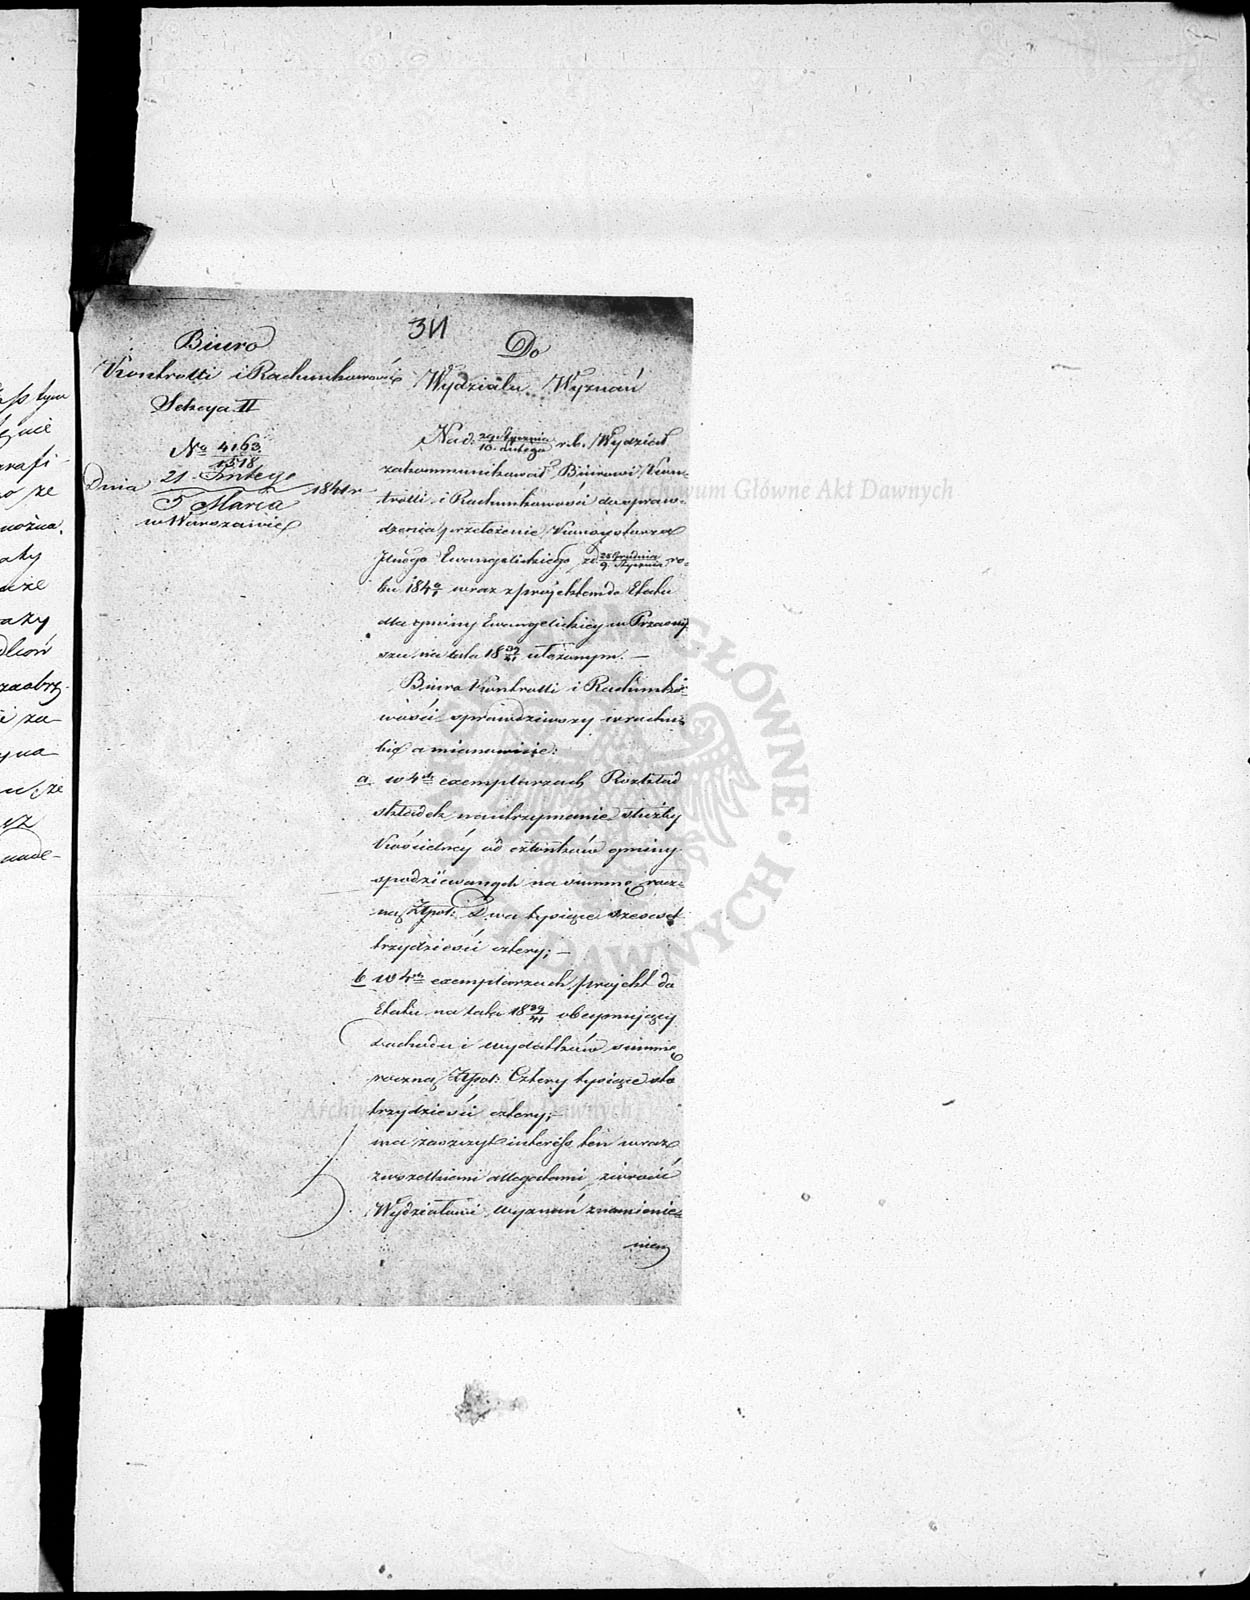 311
Biuro
Kontrolli i Rachunkowości
Sekcya II
No 4163
1518
Dnia 21 Lutego
5 Marca 1841 r
w Warszawie
Do
Wydziału Wyznań
Na d. 29 Stycznia
10 Lutego r.b. Wydział
zakommunikował Biurowi Kon-
trolli i Rachunkowości do spraw-
dzenia przełożenie Konsystorza
Jlnego Ewangelickiego z d. 28 Grudnia
9 Stycznia ro-
ku 1840/1 wraz z projektem do Etatu
dla gminy Ewangelickiej w Przasny-
szu na lata 18 39/41 ułożonym. —
Biuro Kontrolli i Rachunko-
wości sprawdziwszy w rachu-
bie a mianowicie:
a w 4ch exemplarzach Rozkład
składek na utrzymanie służby
Kościelnéj od członków gminy
spodziewanych na summę rocz-
ną Złpol: Dwa tysiące sześćset
trzydzieści cztery; —
b w 4ch exemplarzach projekt do
Etatu na lata 18 39/41 obejmujący
dochodu i wydatków summę
roczną Złpol: Cztery tysiące sto
trzydzieści cztery; —
ma zaszczyt interess ten wraz
z wszelkiemi allegatami zwrócić
Wydziałowi Wyznań z namienie-
niem
żnie
że
można
dłoń
i za-
że
Archiwum Główne Akt Dawnych
Archiwum Główne Akt Dawnych
ARCHIWUM GŁÓWNE AKT DAWNYCH